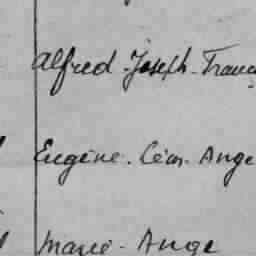 Alfred-Joseph-Franç
Eugène-Léon-Ange
Marie-Ange